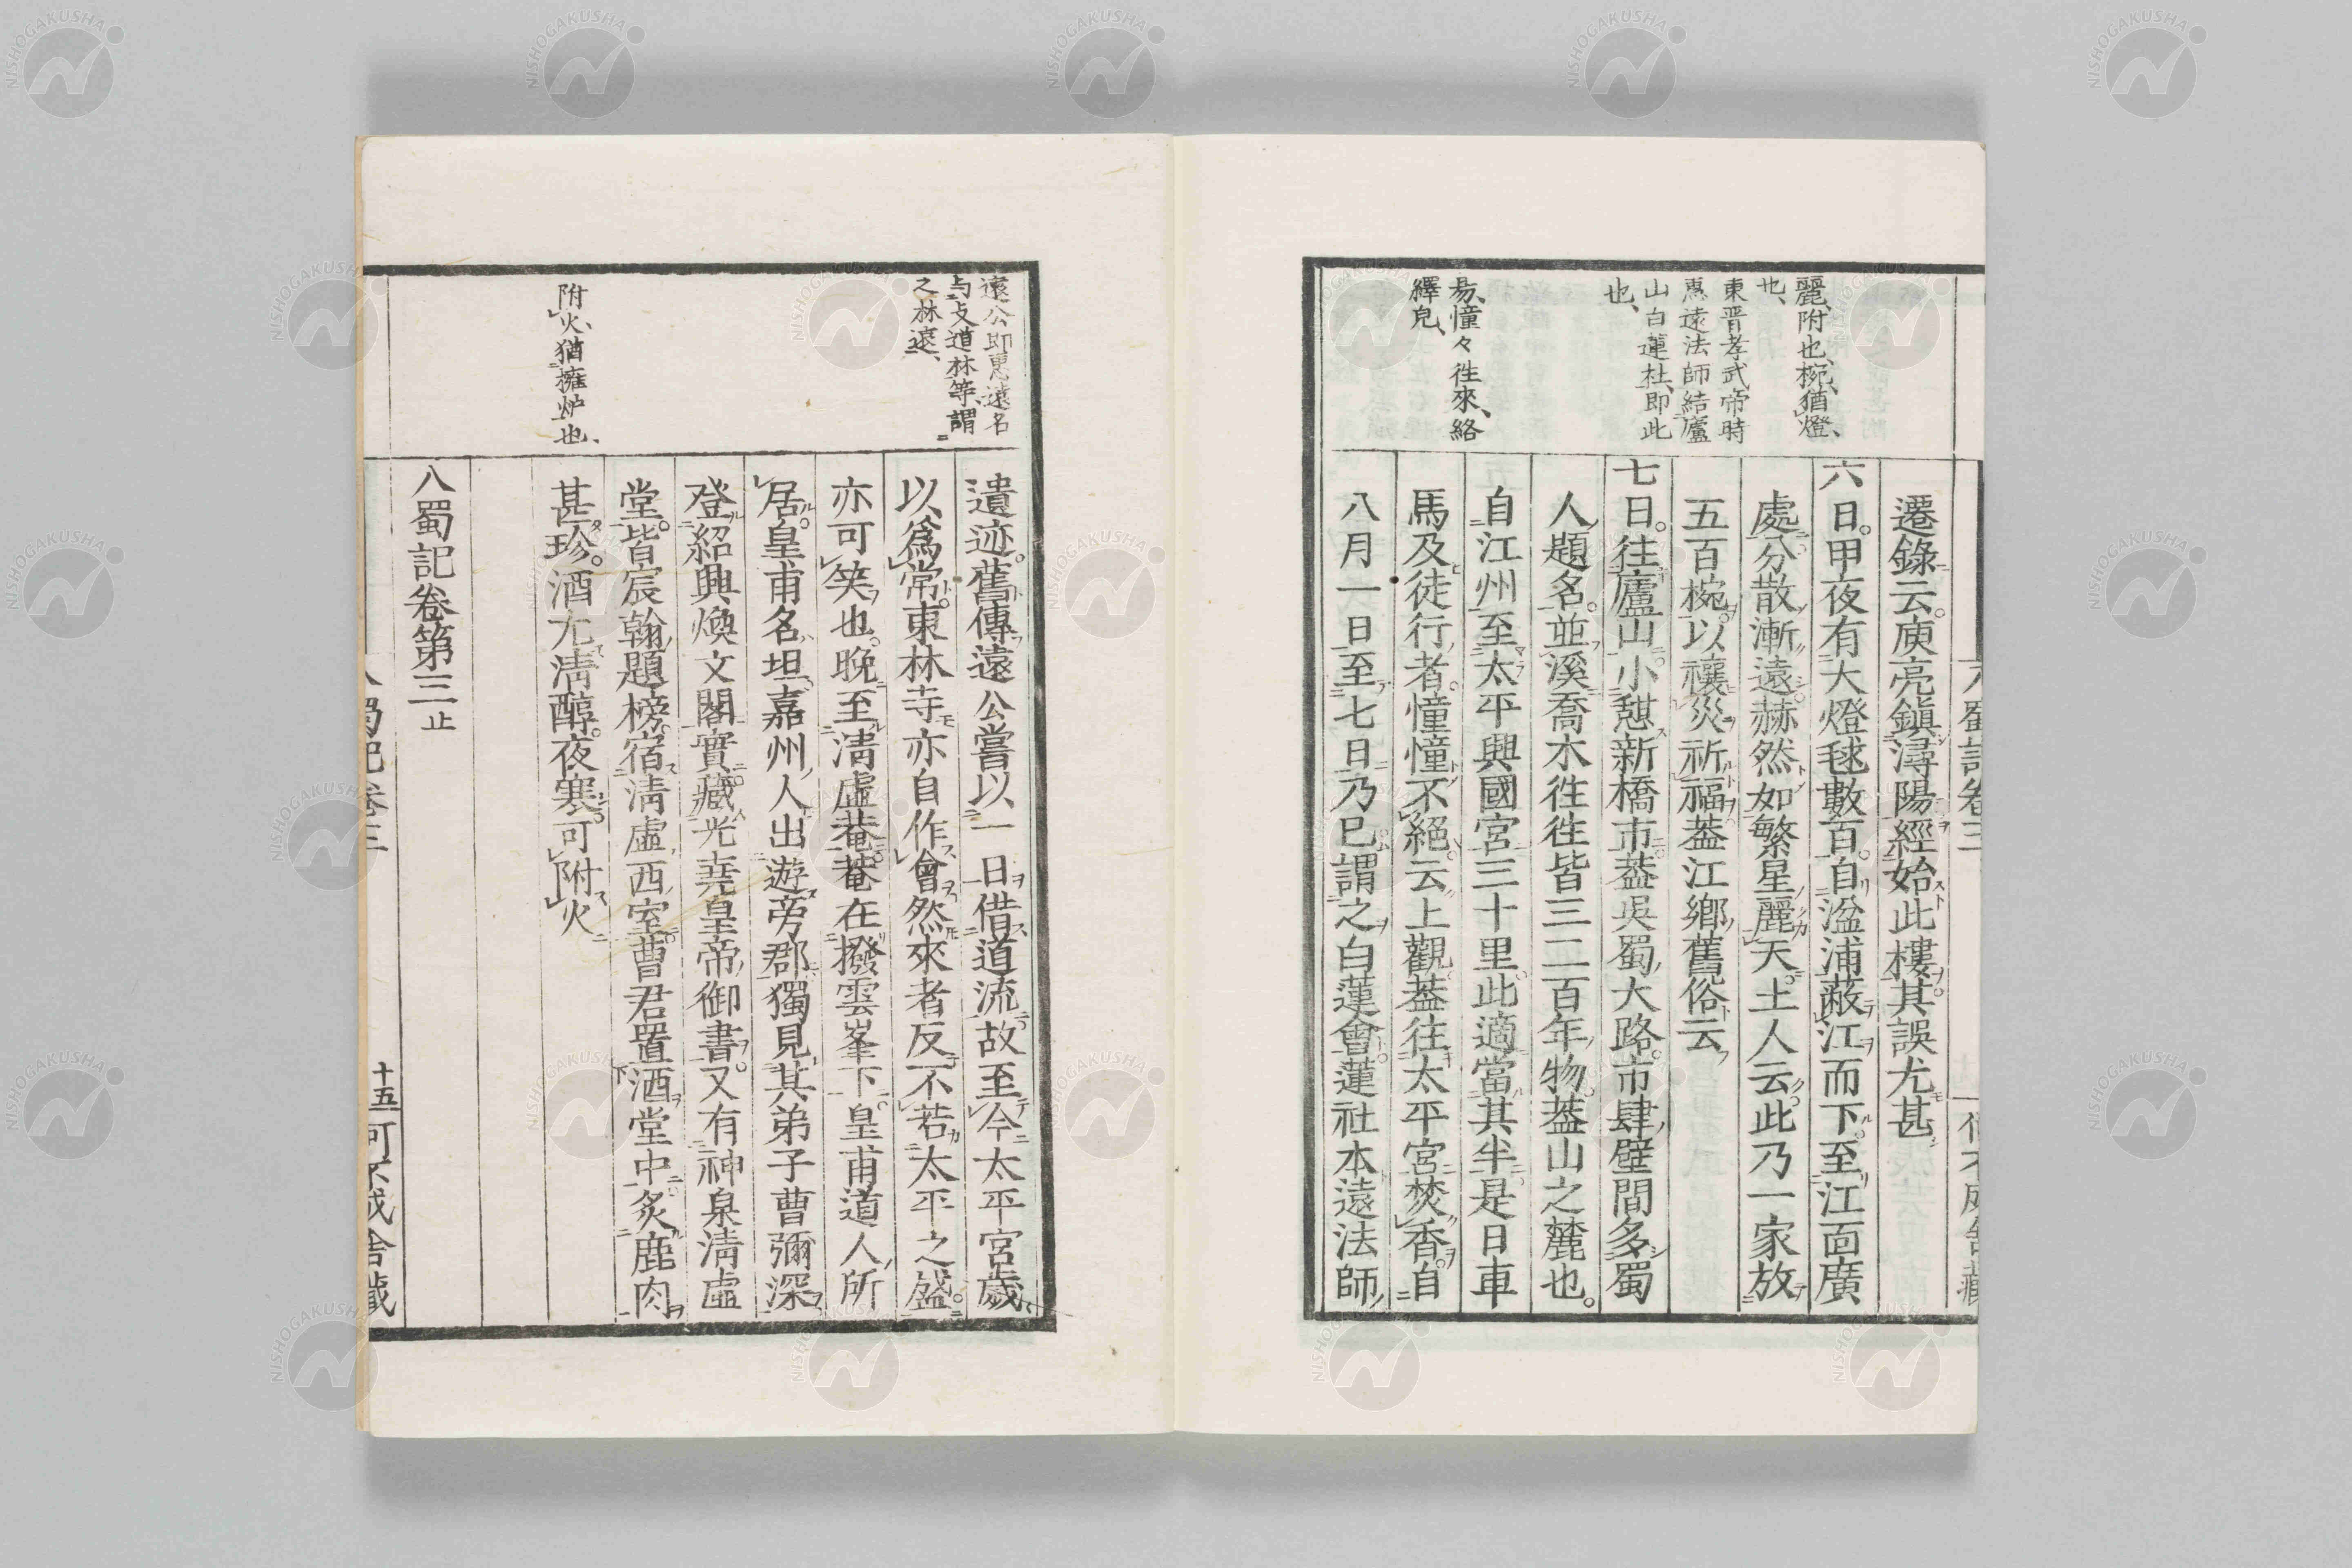 麗、附也、椀、猶燈、
也、
東晋孝武帝時
惠遠法師結廬
山白蓮社、即此
也、
昜、憧々徃來、絡
繹皃、
遷錄云。庾亮鎭潯陽經始此樓。其誤尤甚
六日。甲夜有大燈毬數百。自湓浦蔽江而下。至江面廣
處。分散漸遠。赫然如繁星麗天。土人云。此乃一家放
五百椀。以禳災祈福。葢江鄉舊俗云
七日。往廬山。小憇新橋市。葢吳蜀大路。市肆壁間多蜀
人題名。並溪喬木徃徃皆三二百年物。葢山之麓也。
自江州至太平興國宮三十里。此適當其半。是日車
馬及徒行者。憧憧不絕。云上觀。葢往太平宮焚香。自
八月一日至七日乃巳。謂之白蓮會。蓮社本遠法師
遠公即惠遠、名
与攴道林等、謂
之林遠、
附火、猶擁炉也、
遺迹。舊傳遠公嘗以一日借道流。故至今太平宮歲
以爲常。東林寺亦自作會。然來者反不若太平之盛。
亦可笑也。晚至淸虛菴。菴在撥雲峯下。皇甫道人所
居。皇甫名坦。嘉州人。出遊旁郡。獨見其弟子曹彌深
登紹興煥文閣。實藏光堯皇帝御書。又有神泉淸虛
堂。皆宸翰題榜。宿淸虛西室。曹君置酒堂中。炙鹿肉
甚珍。酒尤淸醇。夜寒。可附火
入蜀記卷第三止
十五